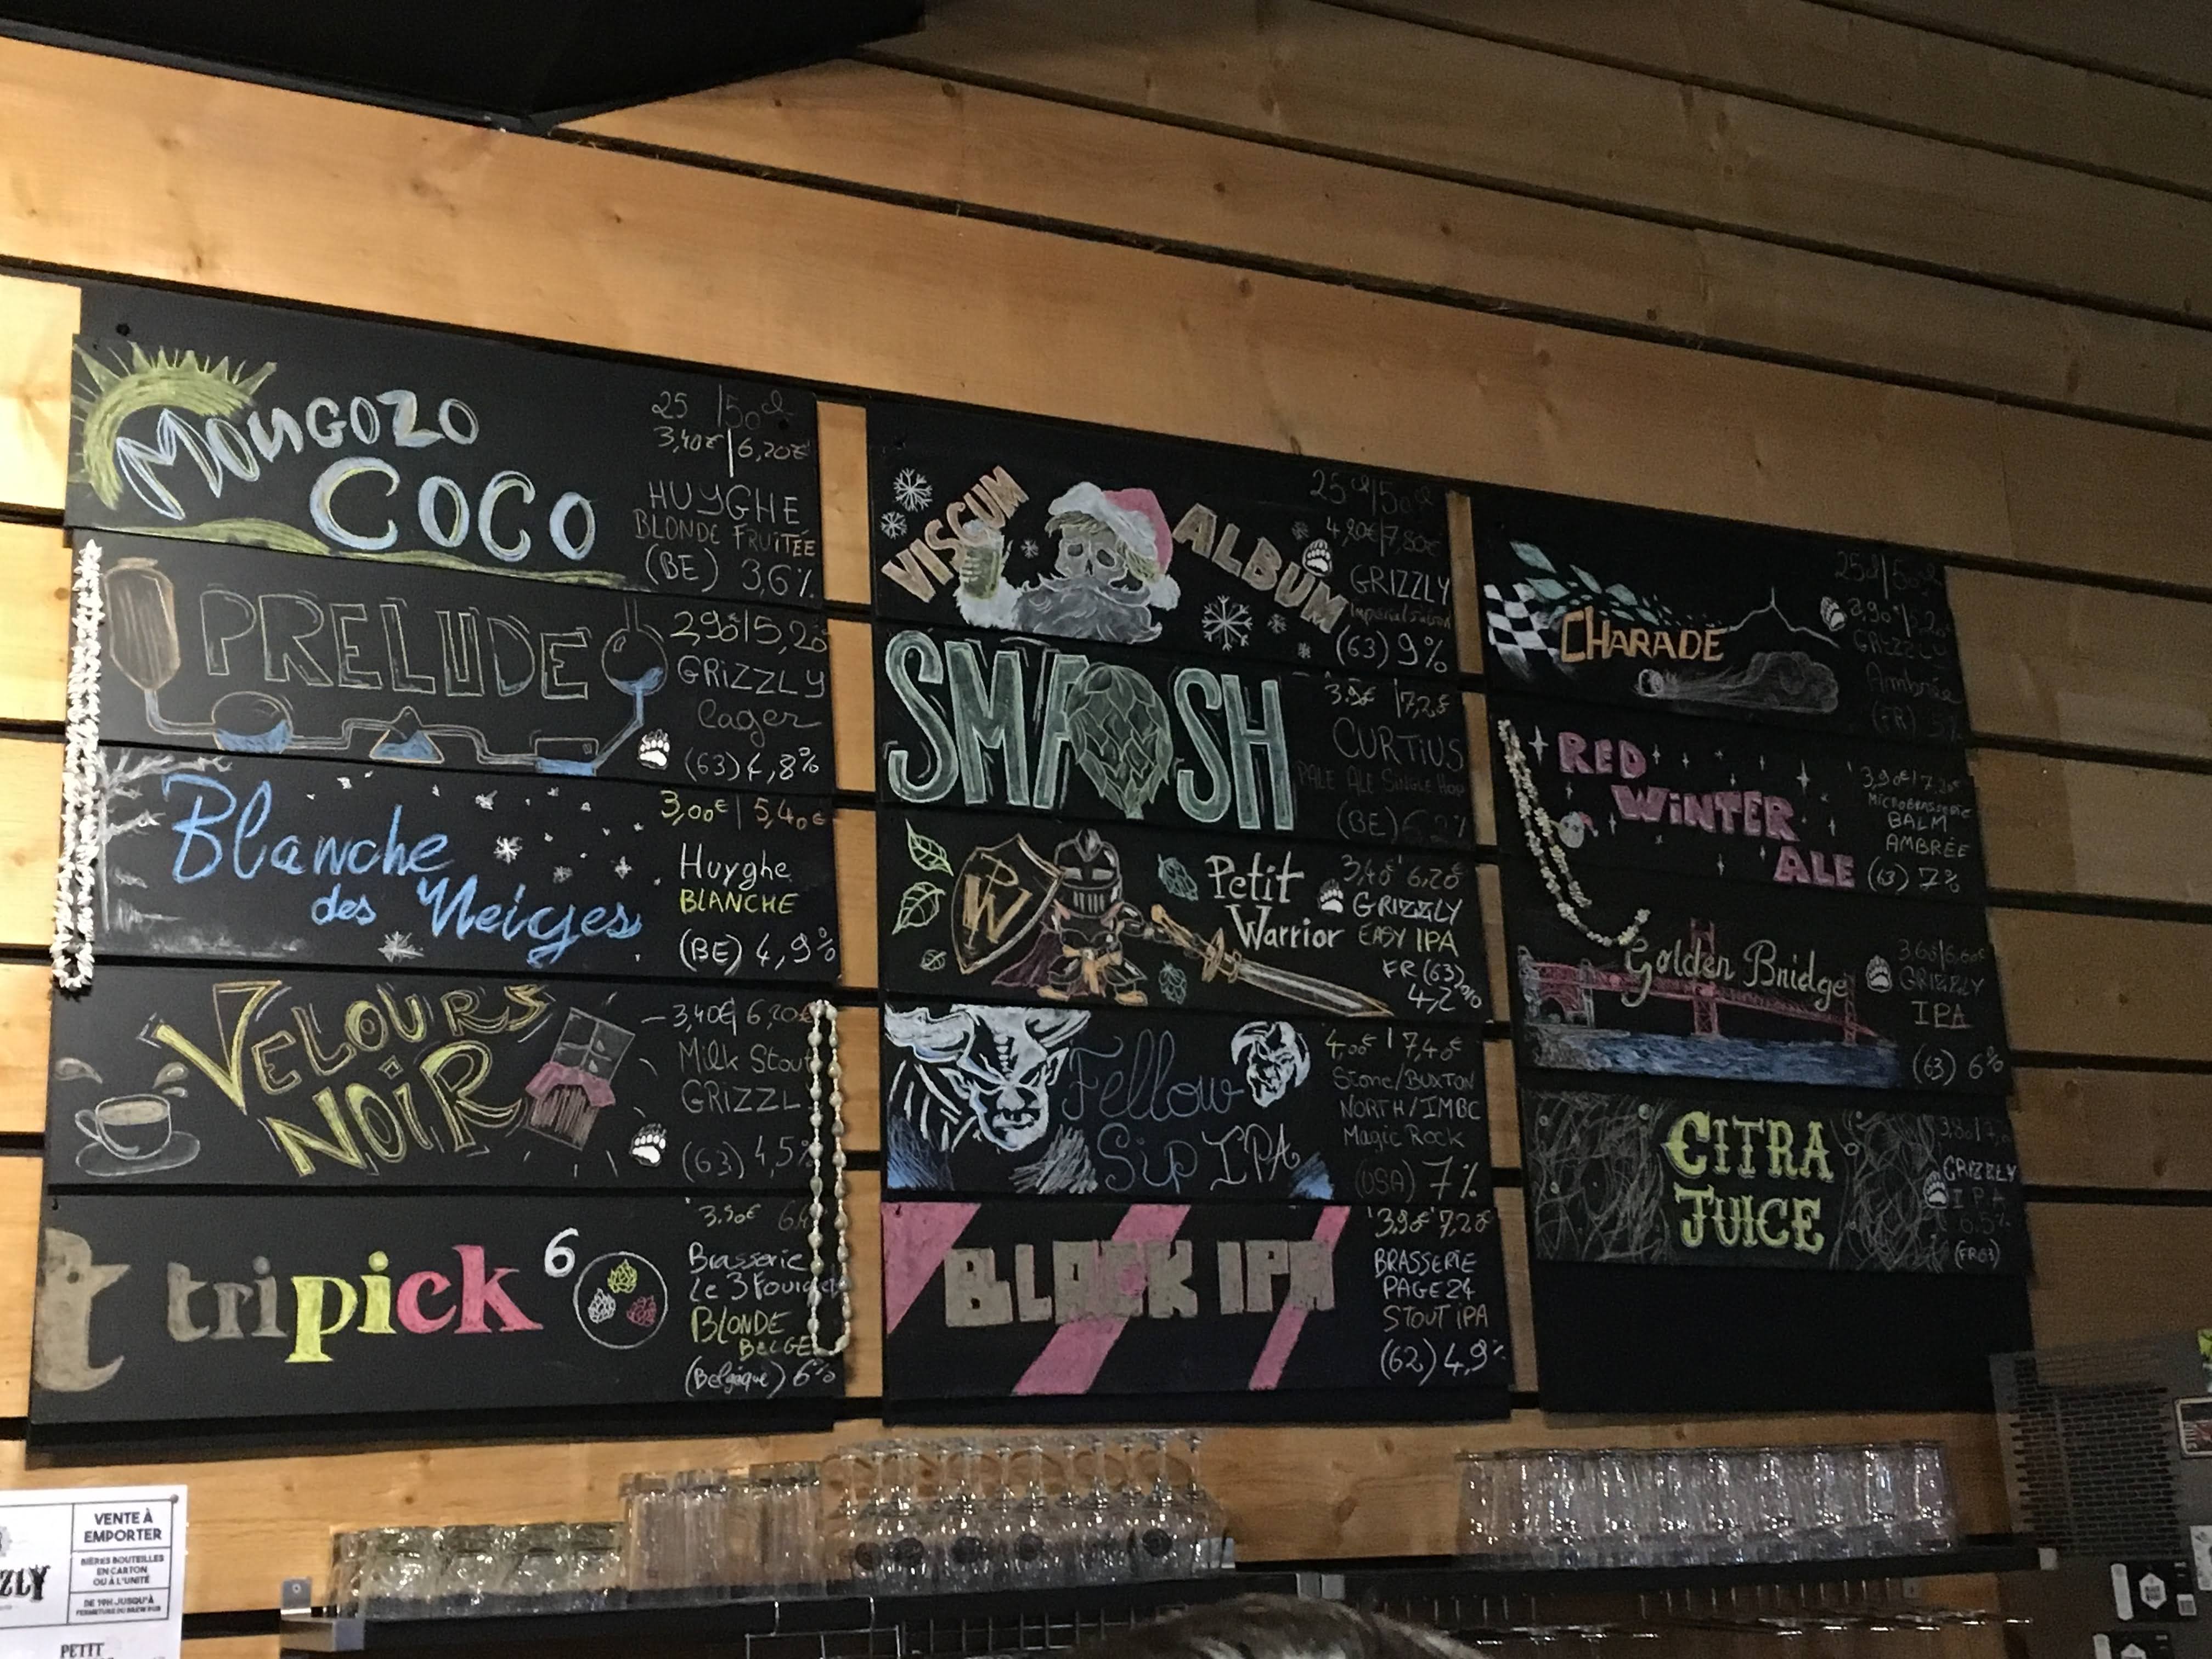 MONGOZO
COCO
25 | 50 cl
3,40€ | 6,20€
HUYGHE
BLONDE FRUITÉE
(BE) 3,6%
PRELUDE
2,90€ | 5,20
GRIZZLY
lager
(63) 4,8%
Blanche
des Neiges
3,00€ | 5,40€
Huyghe
BLANCHE
(BE) 4,9%
VELOURS
NOIR
3,40€ | 6,20€
Milk Stout
GRIZZL
(63) 4,5%
t tripick 6
3.90€
Brasserie
Le 3 Fourquet
BLONDE
BELGE
(Belgique) 6%
VISCUM ALBUM
25 cl | 50 cl
4,20€ | 7,80€
GRIZZLY
(63) 9%
SMASH
3.9€ | 7,2€
CURTIUS
PALE ALE SINGLE HOP
(BE) 6.2%
PW
Petit
Warrior
3,40€ 6,20€
GRIZZLY
EASY IPA
FR (63)
4,2%
Fellow
Sip IPA
4,00€ | 7,40€
Stone/BUXTON
NORTH/IMBC
Magic Rock
(USA) 7%
BLACK IPA
3.90€ 7,20€
BRASSERIE
PAGE 24
STOUT IPA
(62) 4,9%
CHARADE
25cl | 50cl
2,90€ | 5,20
GRIZZLY
Ambrée
(FR) 5%
RED
WINTER
ALE
3,90€ | 7,20€
MICROBRASSERIE
BALM
AMBRÉE
(63) 7%
Golden Bridge
3,60€ | 6,60€
GRIZZLY
IPA
(63) 6%
CITRA
JUICE
GRIZZLY
IPA
6.5%
(FR63)
ZLY
VENTE À
EMPORTER
BIÈRES BOUTEILLES
EN CARTON
OU À L'UNITÉ
DE 19H JUSQU'À
FERMETURE DU BREW PUB
PETIT